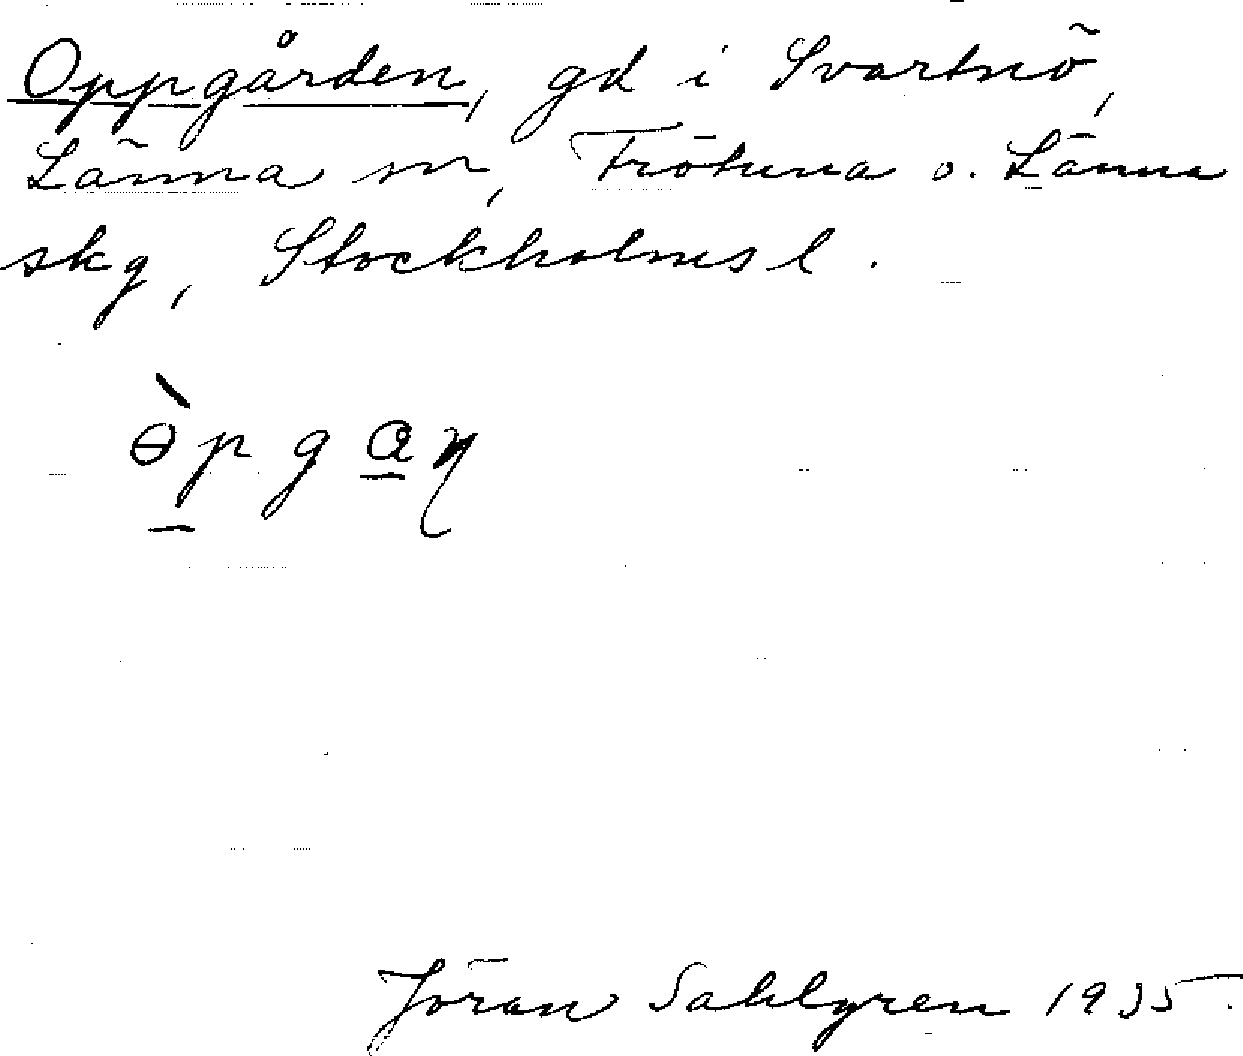 Oppgården, gd i Svartnö,
Länna sn, Frötuna o. Länna
skg, Stockholms l.
ɵ̀p̲ga̲ɳ
Jöran Sahlgren 1935.